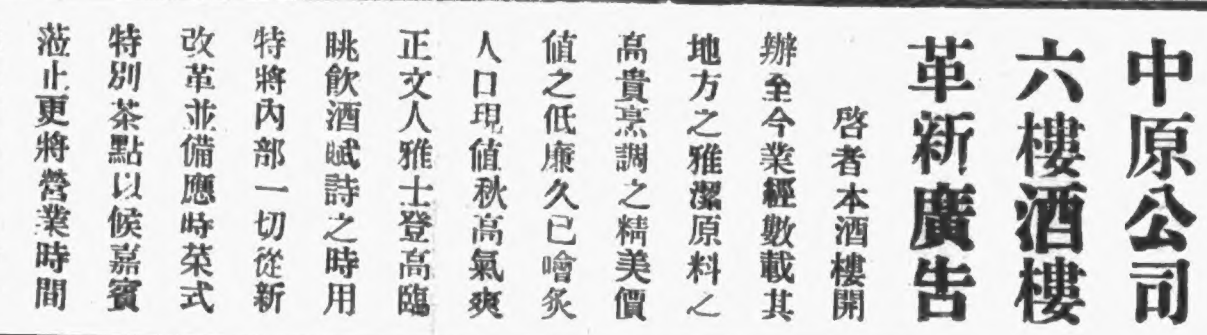 中原公司
六樓酒樓
革新廣告
啓者本酒樓開
辦至今業經數載其
地方之雅潔原料之
高貴烹調之精美價
值之低廉久已噲炙
人口現值秋高氣爽
正文人雅士登高臨
眺飲酒賦詩之時用
特將內部一切從新
改革並備應時菜式
特別茶點以候嘉賓
蒞止更將營業時間